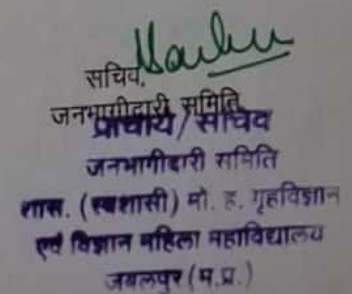 सचिव,
जनभागीदारी समिति
प्राचार्य / सचिव
जनभागीदारी समिति
शास. (स्वशासी) मो. ह. गृहविज्ञान
एवं विज्ञान महिला महाविद्यालय
जबलपुर (म.प्र.)